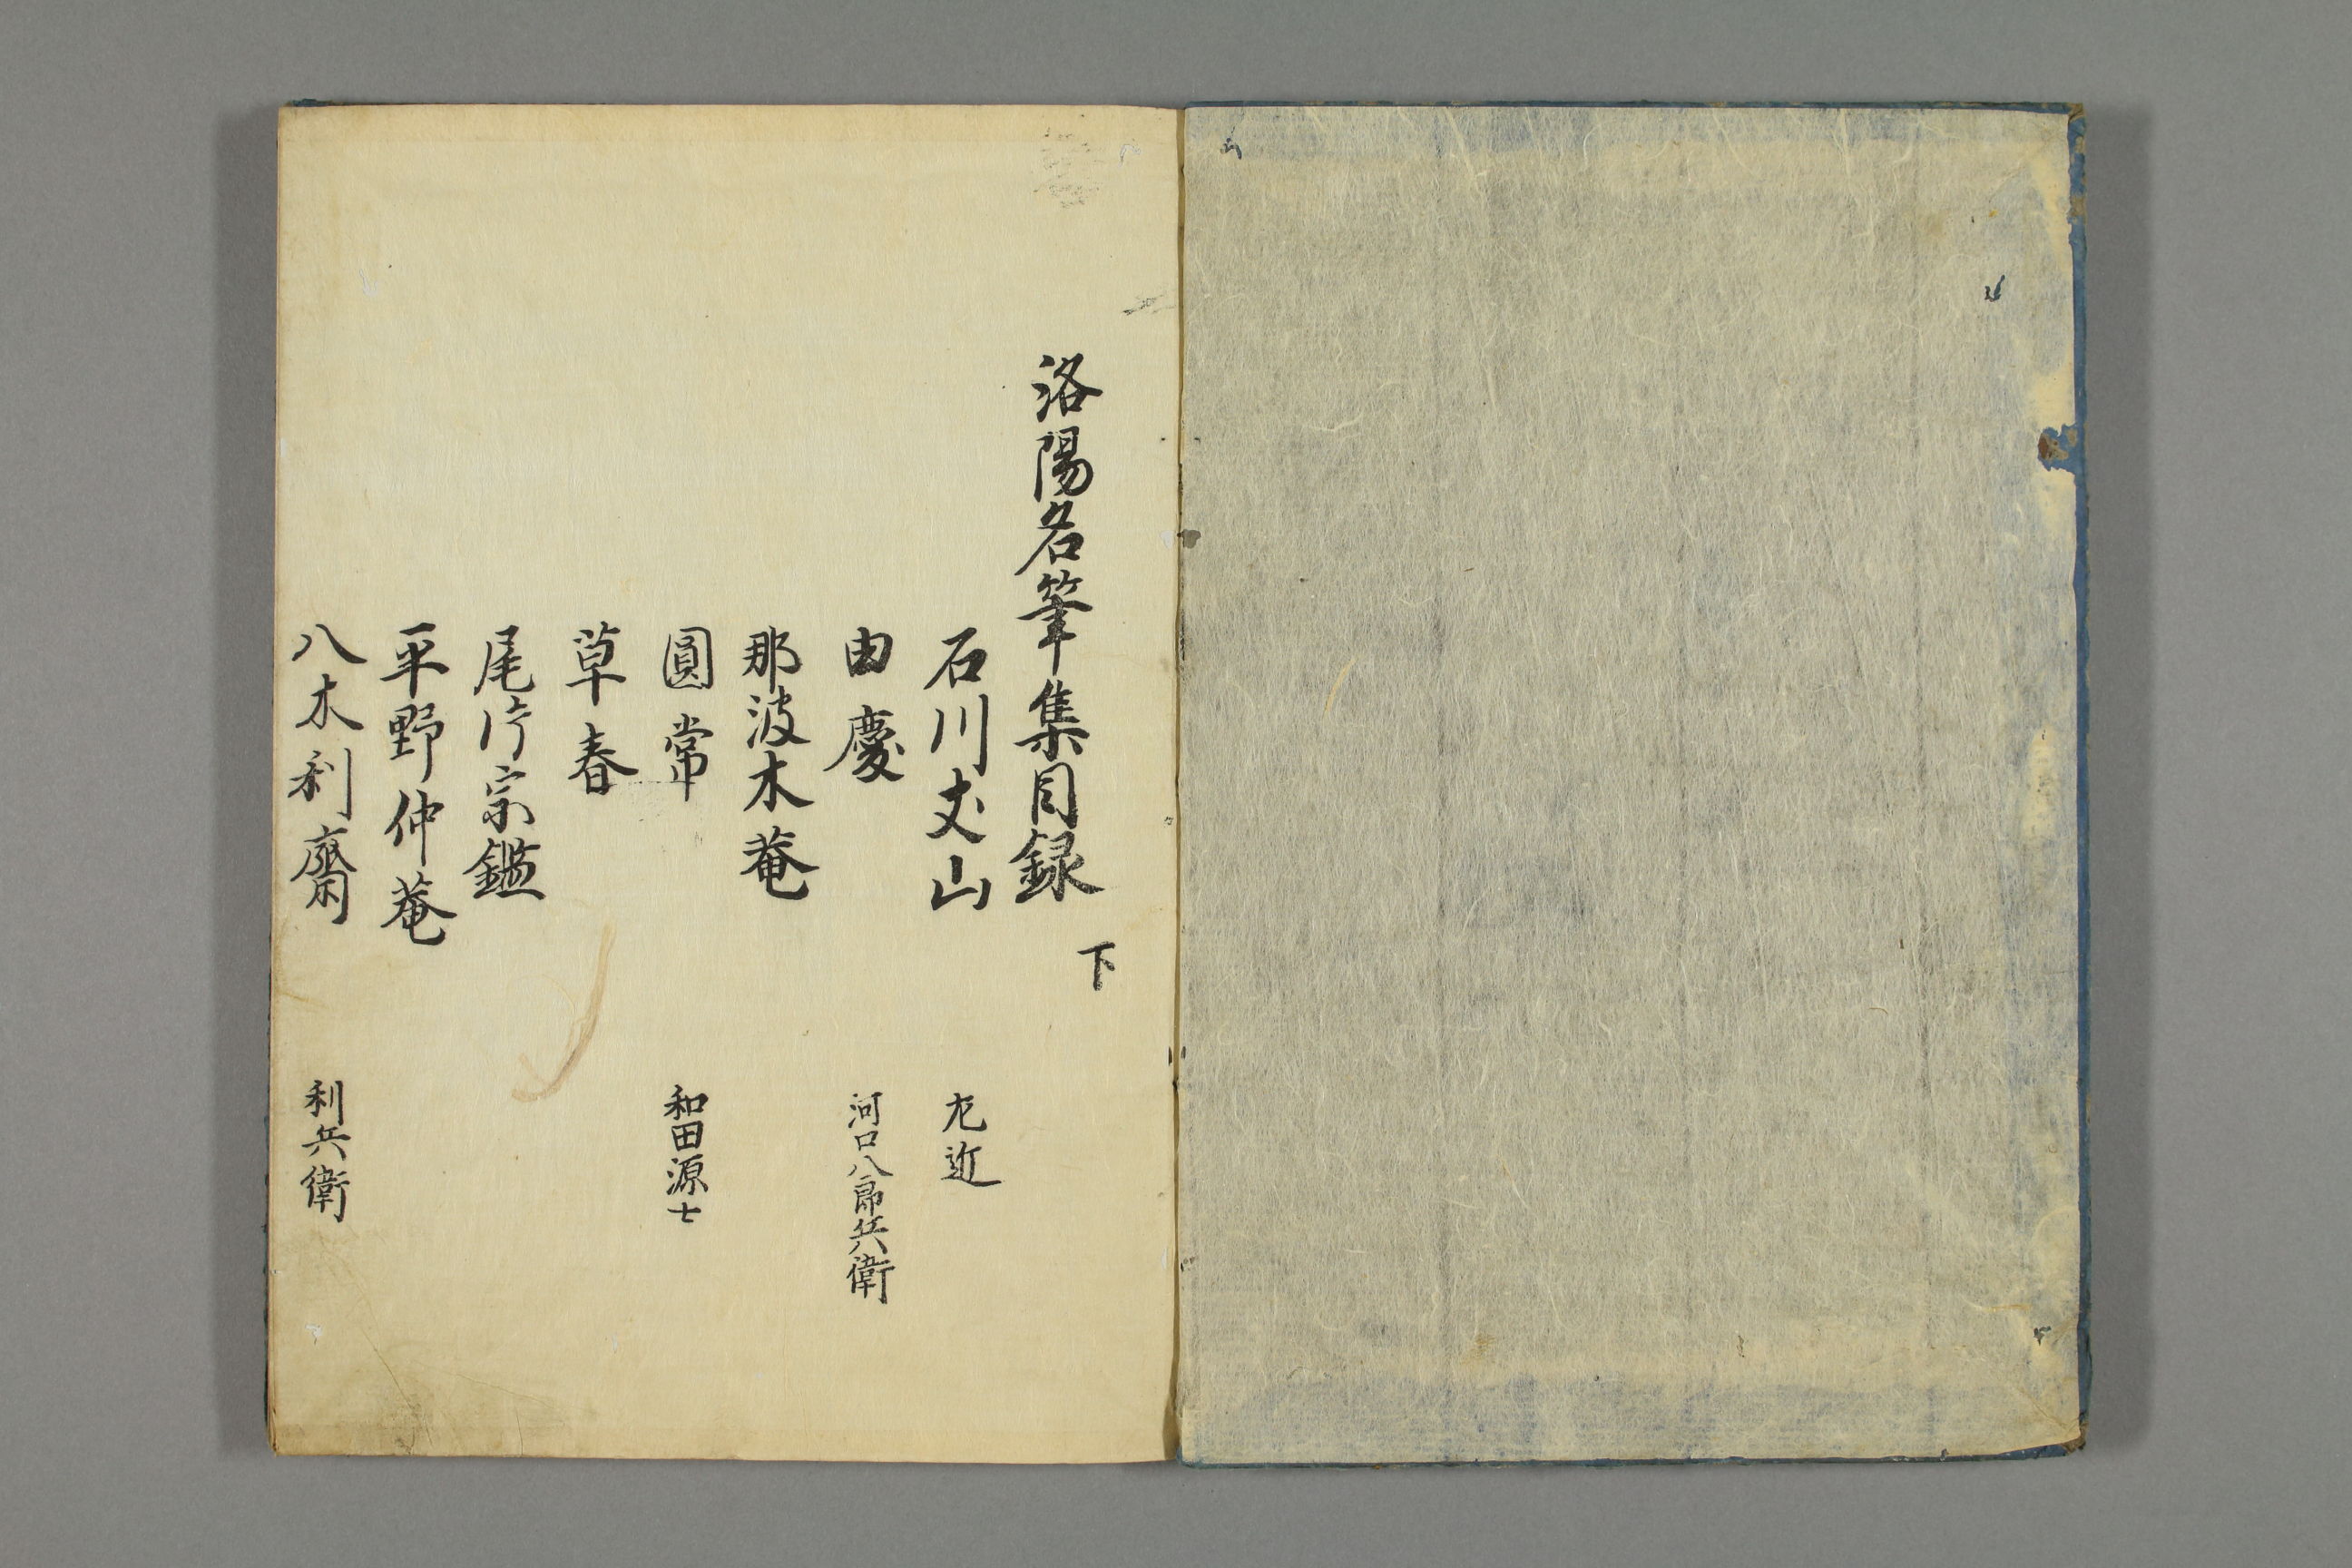 洛陽名筆集目録 下
石川丈山 尤近
由慶 河口八郎兵衛
那波木菴
圓常 和田源七
草春
尾片宗鑑
平野仲菴
八木利齋 利兵衛